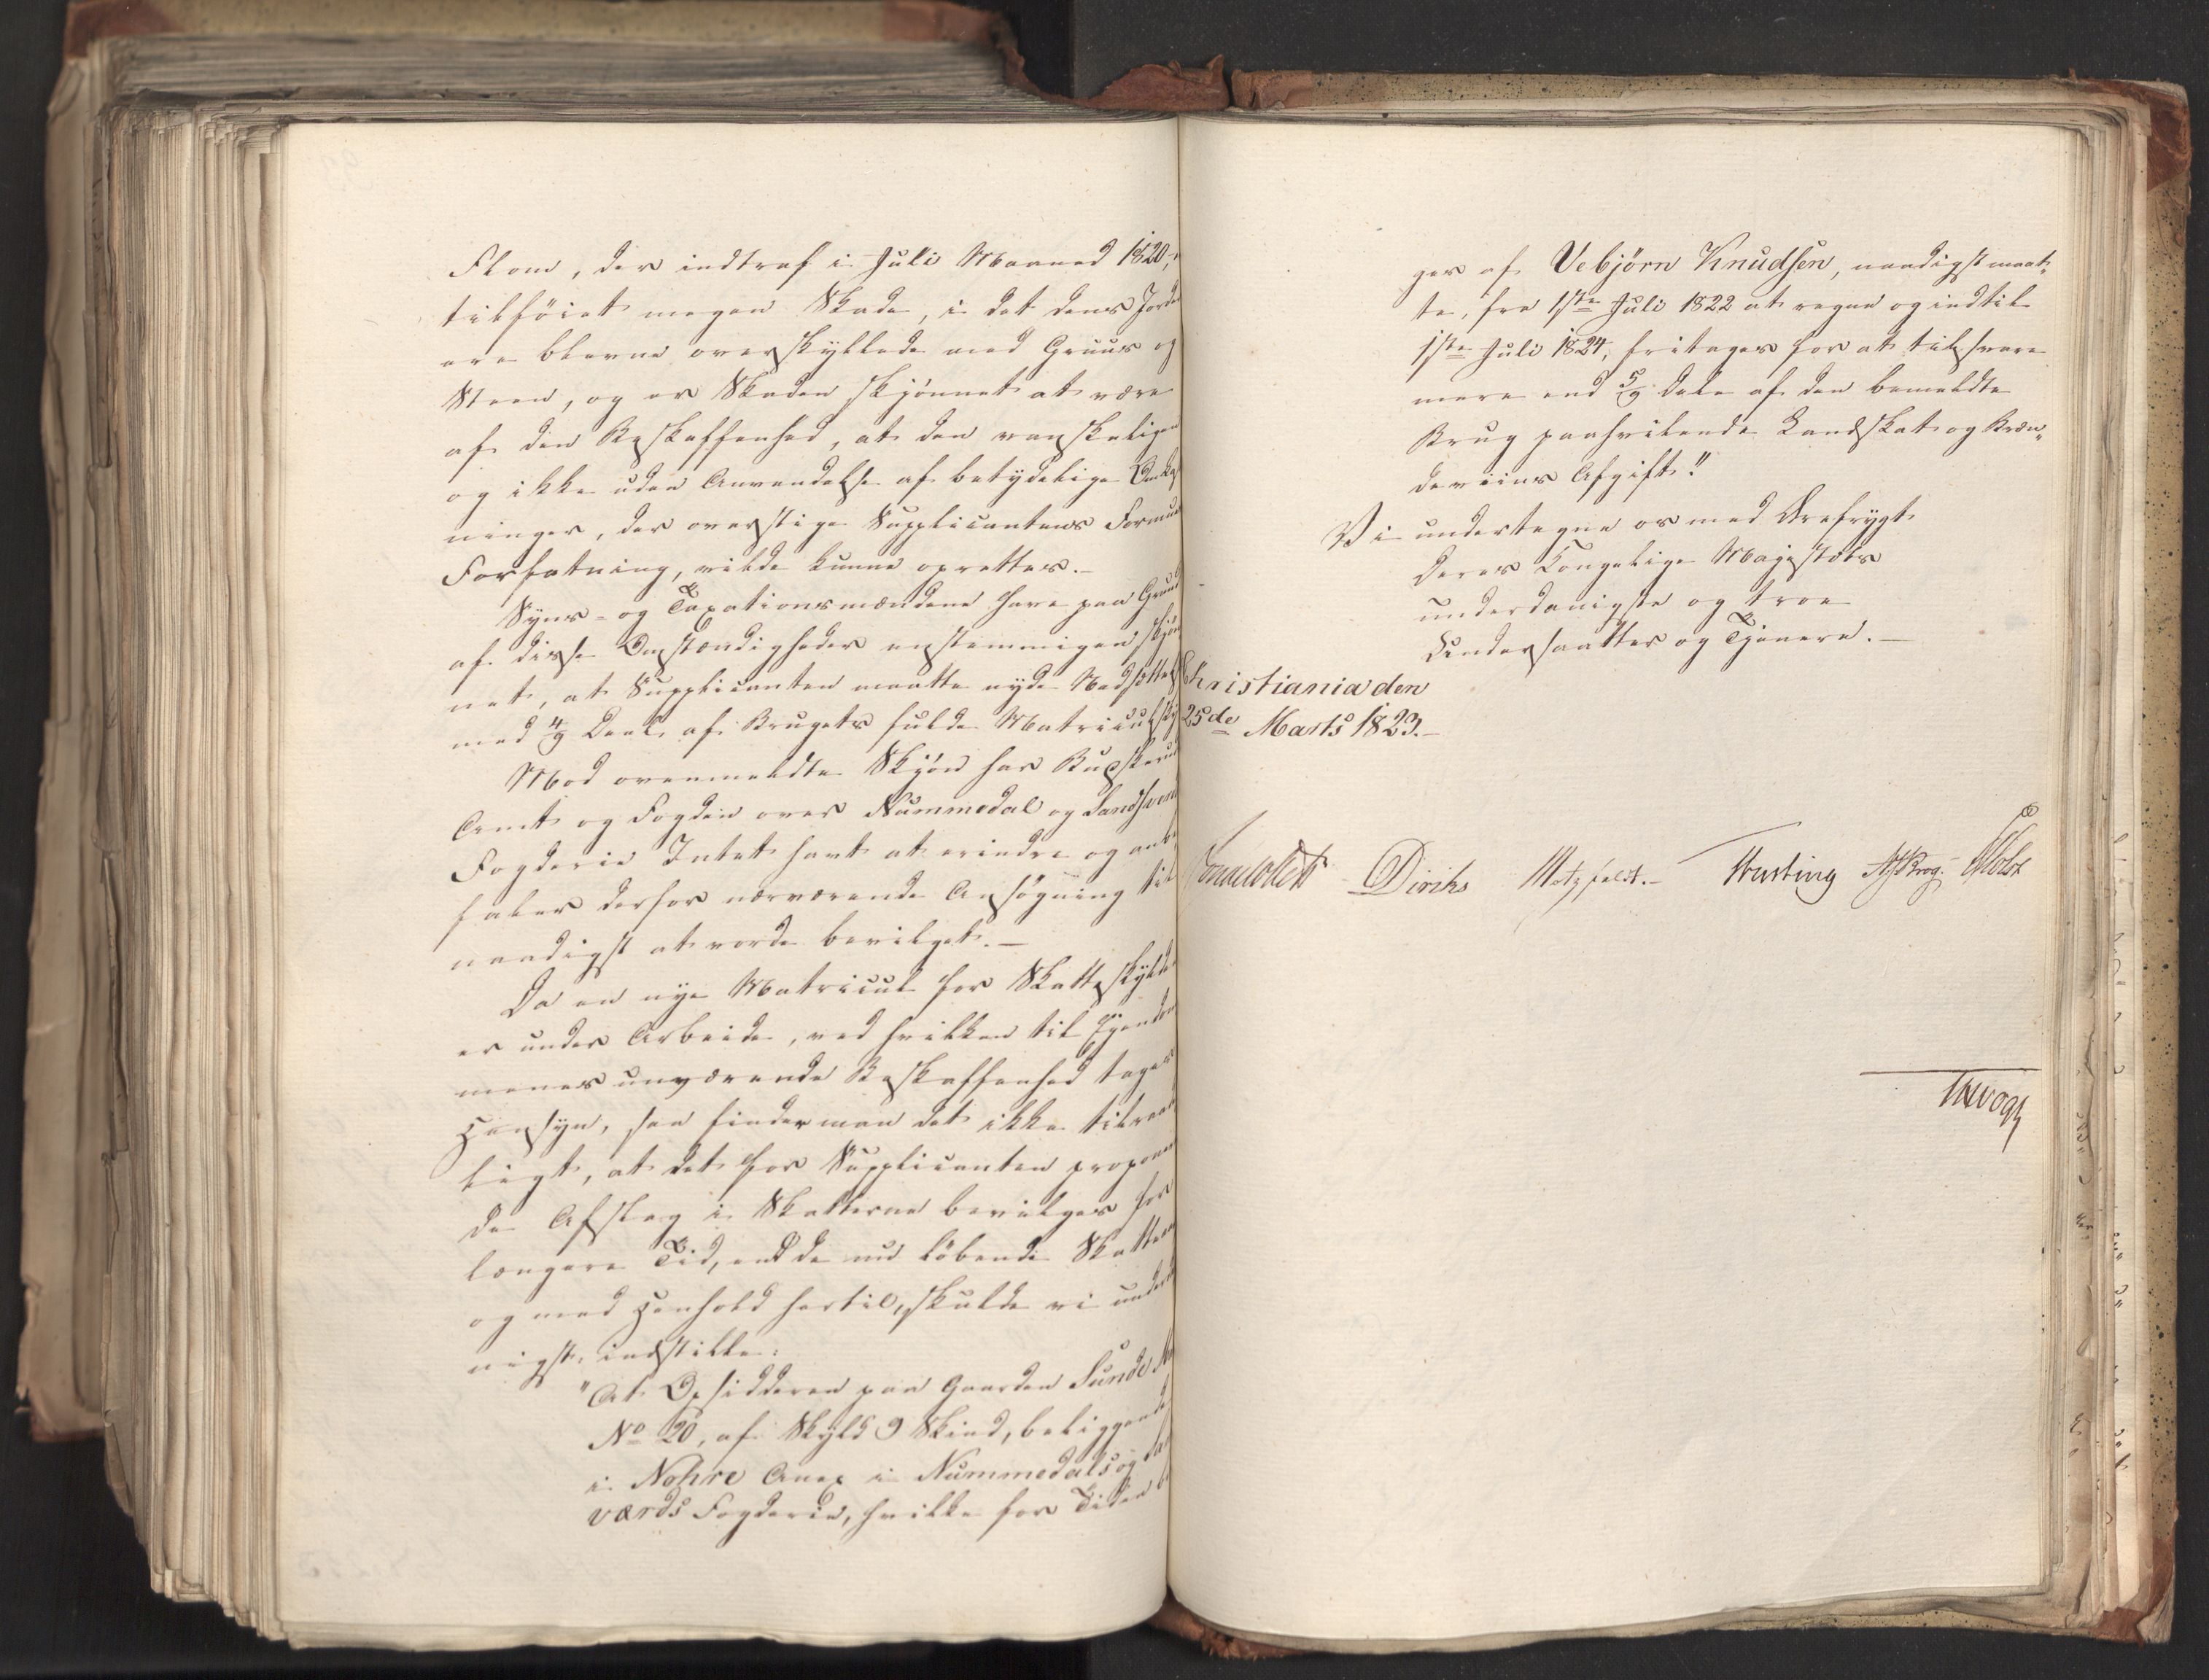 Flom, der indtraf i Juli Maaned 1820,
tilföiet megen Skade, i det dens Jorde
ere blevne overskyllede med Gruus og
Steen, og er Skaden skjönnet at være
af den Beskaffenhed, at den vanskeligen
og ikke uden Anvendelse af betydelige
ninger, der overstige Supplicantens Formue
Forfatning, vilde kunne oprettes.—
Syns- og Taxationsmændene have paa Grund
af disse Omstændigheder eenstemmigen skjön
net, at Supplicanten maatte nyde Nedsættelse
med 4/9 Deel af Brugets fulde Matriculskyld
Mod ovenmeldte Skjön har Buskeruds
Amt og Fogden over Nummedal og Sandsværds
Fogderie Intet havt at erindre og anbe
faler derfor nærværende Ansögning til
naadigst at vorde bevilget.—
Da en nye Matricul for Skatteskylden
er under Arbeide, ved hvilken til Ejendom
menes nuværende Beskaffenhed tages
Hensyn, saa finder man det ikke tilraade
ligt, at det for Supplicanten propone
de Afslag i Skatterne bevilges for
længere Tid, end de nu löbende Skatte
og med Henhold hertil, skulde vi underda
nigst indstille:
"At Opsidderen paa Gaarden Sunde
No 20, af Skyld 9 Skind, beliggende
i Nohre Anex i Nummedals og San
værds Fogderie, hvilke for Tiden
ges af Vebjörn Knudsen, naadigst maat„
te, fra 1ste Juli 1822 at regne og indtil
1ste Juli 1824, fritages for at tilsvare
mere end 5/9 Dele af den bemeldte
Brug paahvilende Landskat og Bræn„
deviins Afgift."
Vi undertegne os med Ærefrygt
Deres Kongelige Majestæts
underdanigste og troe
Undersaatter og Tjenere.—
Christiania den
25de Marts 1823.—
Diriks Motzfeldt.— Krog Holst